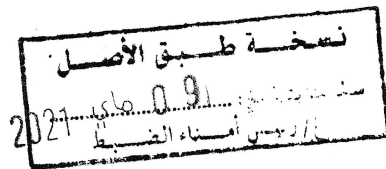 نسخة طبق الأصل
09 ماي 2021
/ رئيس أمناء الضبط